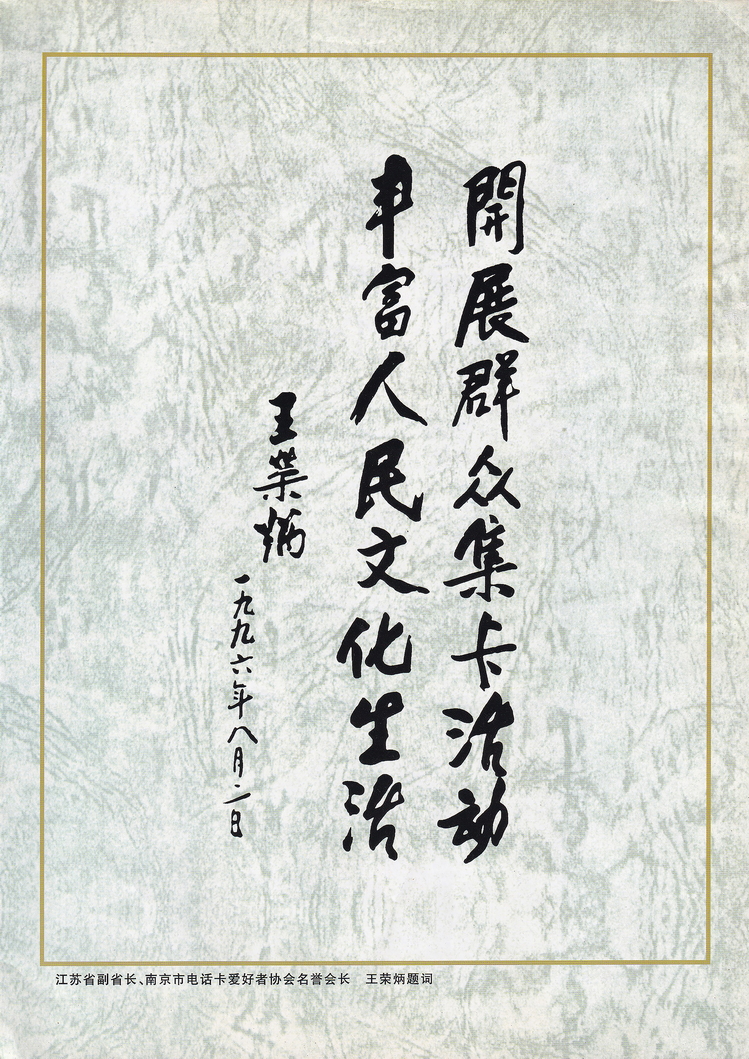 開展群众集卡活动
丰富人民文化生活
王荣炳
一九九六年八月二日
江苏省副省长、南京市电话卡爱好者协会名誉会长 王荣炳题词